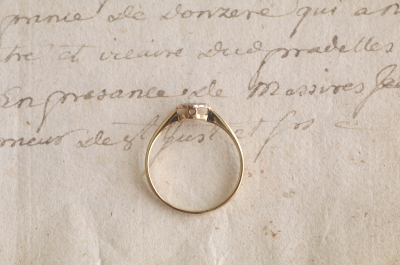 prince de donzere qui a
tre et vicaire dud pradelles
En presance de Messires
rieur de st Just et